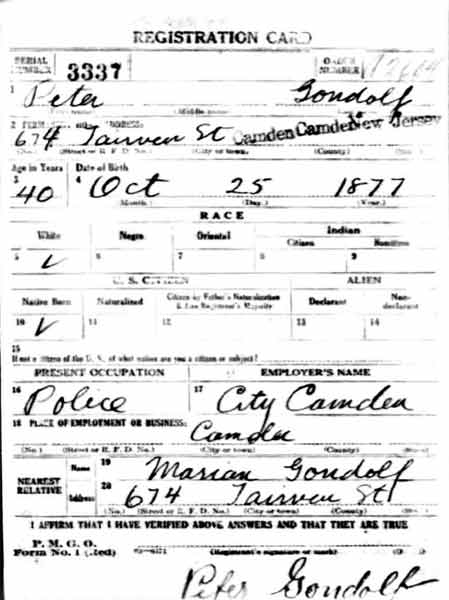 REGISTRATION CARD
SERIAL NUMBER 3337 ORDER NUMBER
1 Peter Gondolf
(Middle name)
2
674 St Camden Camden New Jersey
(No.) (Street or R. F. D. No.) (City or town) (County)
Age in Years Date of Birth
3 40 4 Oct 25 1877
(Month.) (Day.) (Year.)
RACE
White Negro Oriental Indian
Citizen Noncitizen
5 ✓ 6 7 8 9
U. S. CITIZEN ALIEN
Native Born Naturalized Citizen by Father's Naturalization Before Registrant's Majority Declarant Non-declarant
10 ✓ 11 12 13 14
15
If not a citizen of the U. S., of what nation are you a citizen or subject?
PRESENT OCCUPATION EMPLOYER'S NAME
16 Police 17 City Camden
18 PLACE OF EMPLOYMENT OR BUSINESS:
Camden
(No.) (Street or R. F. D. No.) (City or town) (County)
NEAREST RELATIVE Name 19 Marian Gondolf
Address 20 674 St
(No.) (Street or R. F. D. No.) (City or town) (County)
I AFFIRM THAT I HAVE VERIFIED ABOVE ANSWERS AND THAT THEY ARE TRUE
P. M. G. O.
Form No. 1 (Red) (Registrant's signature or mark)
Peter Gondolf